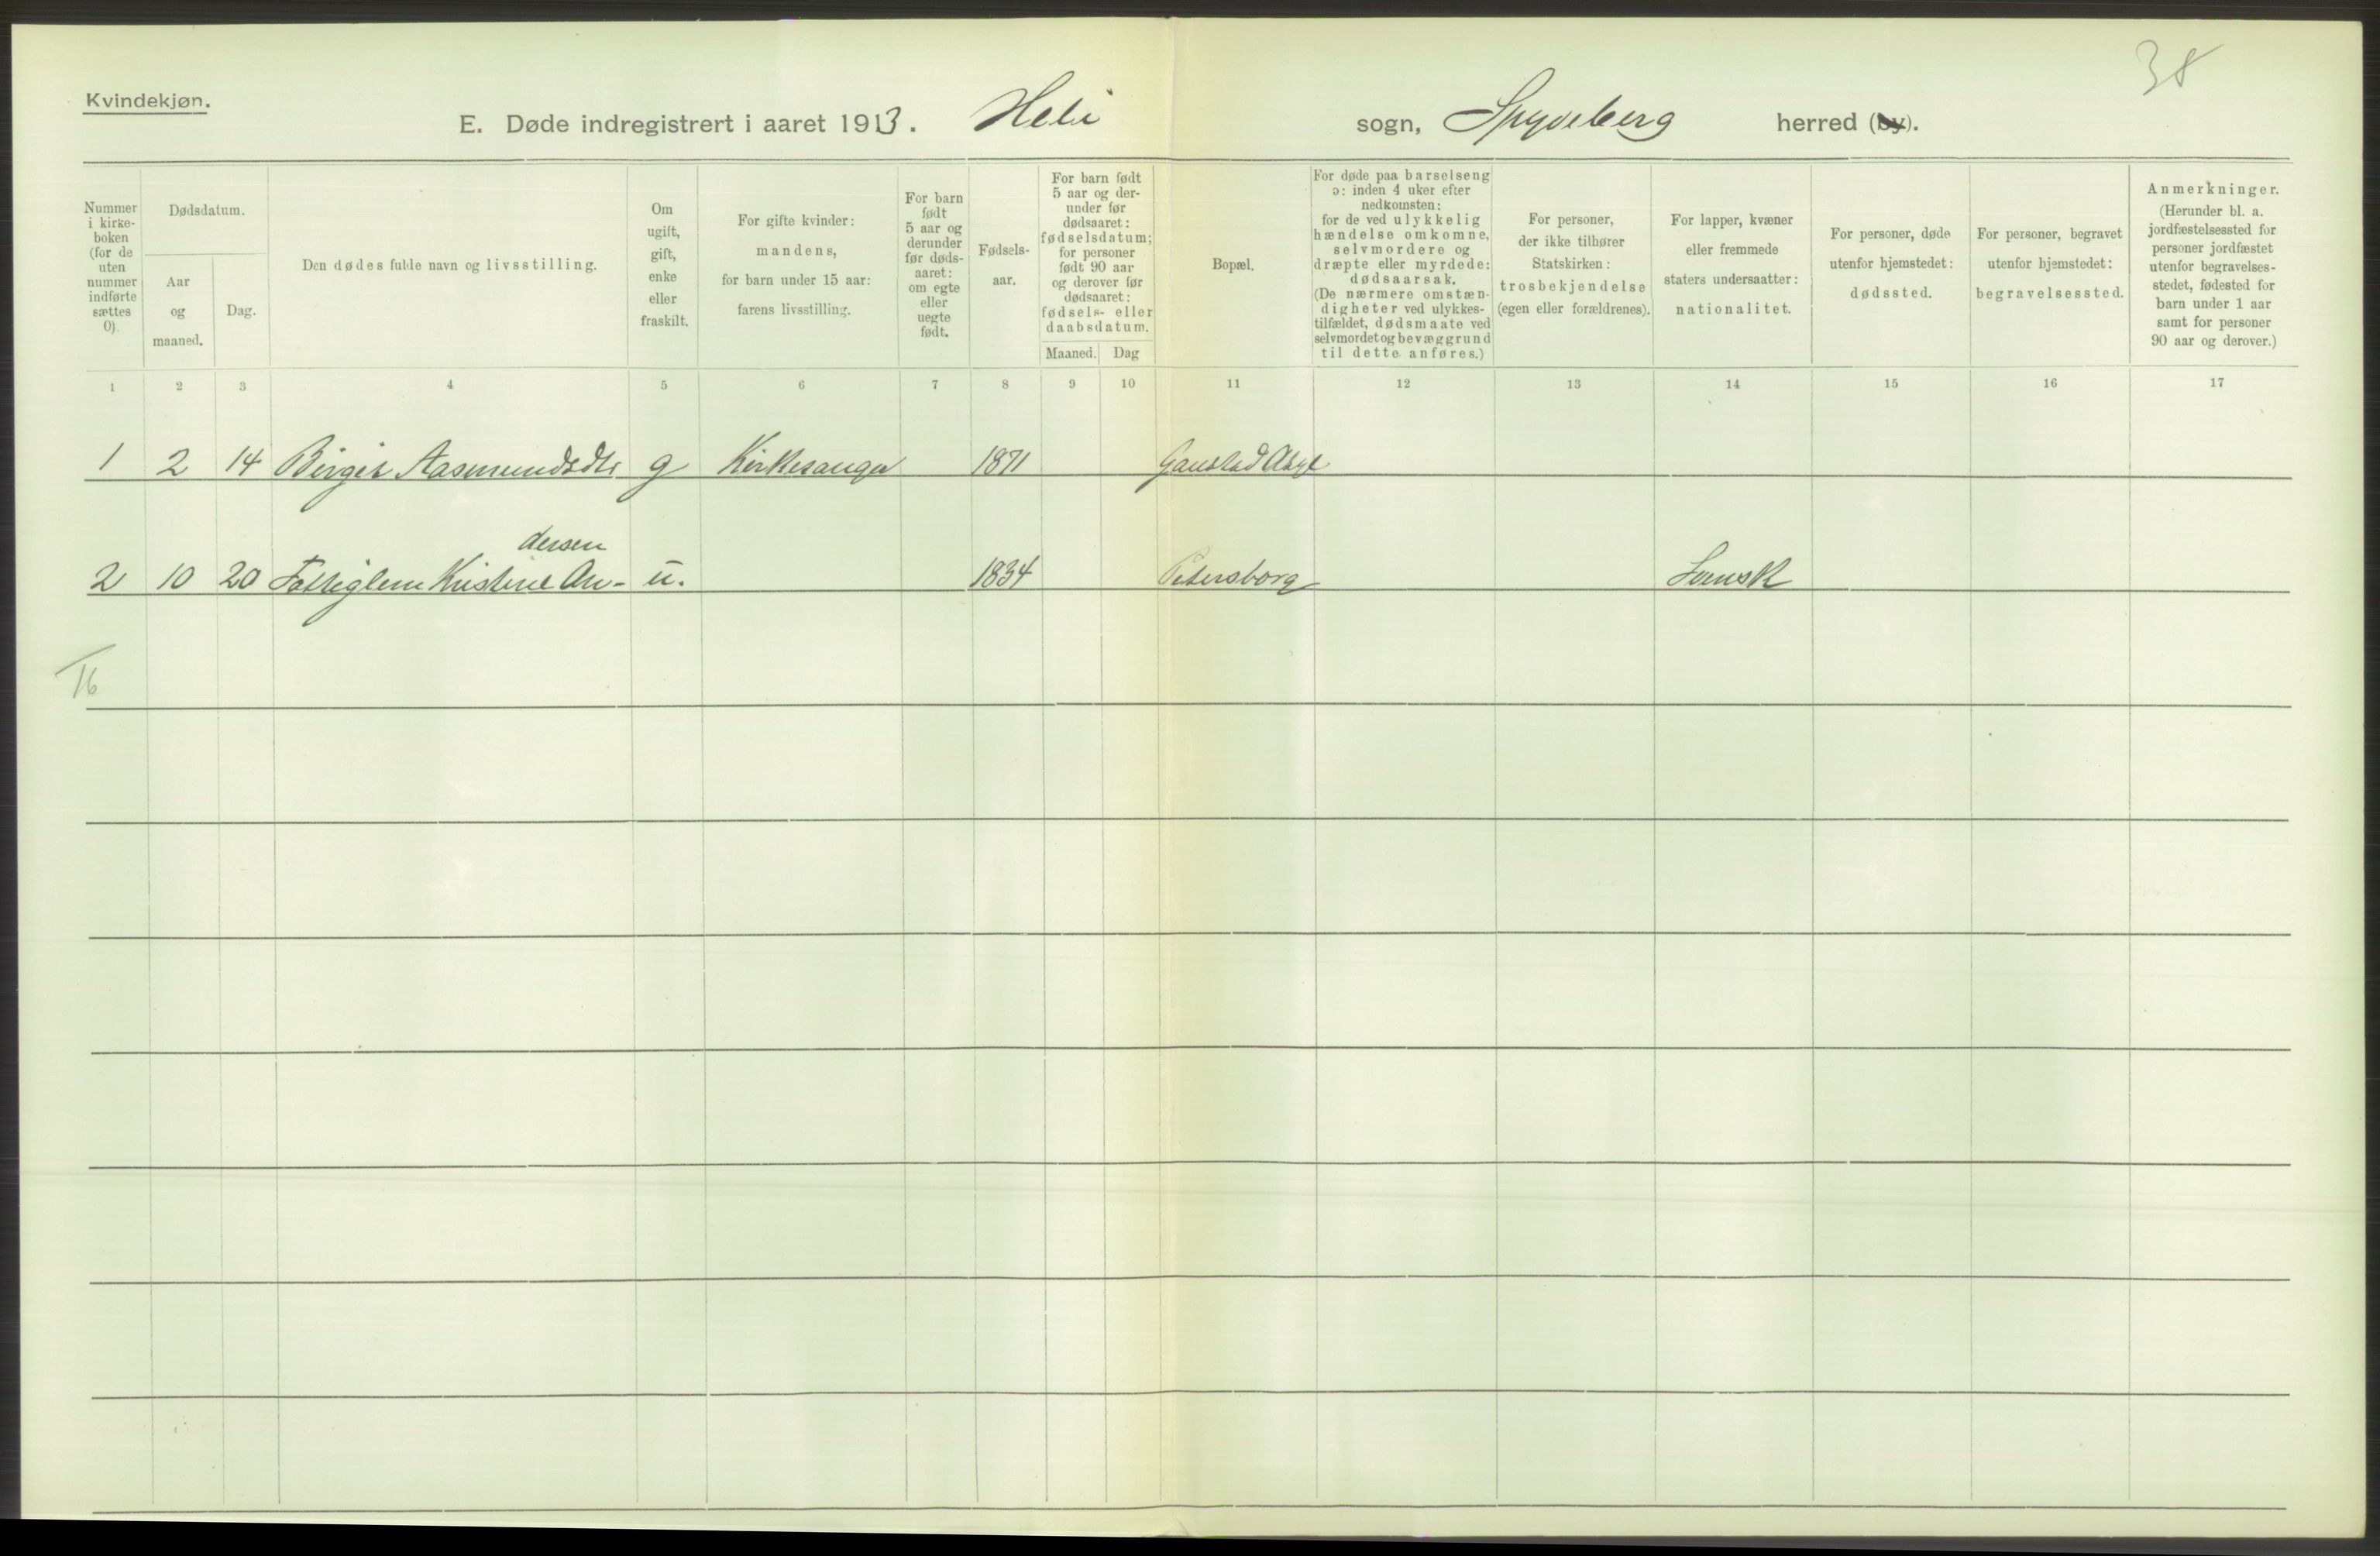 38
Kvindekjøn.
E. Døde indregistrert i aaret 1913. Heli sogn, Spydeberg herred (by).
Nummer i kirke-boken (for de uten nummer indførte sættes 0).
Dødsdatum.
Aar og maaned.
Dag.
Den dødes fulde navn og livsstilling.
Om ugift, gift, enke eller fraskilt.
For gifte kvinder: mandens, for barn under 15 aar: farens livsstilling.
For barn født 5 aar og derunder før døds-aaret: om egte eller uegte født.
Fødsels-aar.
For barn født 5 aar og der-under før dødsaaret: fødselsdatum; for personer født 90 aar og derover før dødsaaret: fødsels- eller daabsdatum.
Maaned. Dag
Bopæl.
For døde paa barselseng ɔ: inden 4 uker efter nedkomsten: for de ved ulykkelig hændelse omkomne, selvmordere og dræpte eller myrdede: dødsaarsak. (De nærmere omstæn-digheter ved ulykkes-tilfældet, dødsmaate ved selvmordet og bevæggrund til dette anføres.)
For personer, der ikke tilhører Statskirken: trosbekjendelse (egen eller forældrenes).
For lapper, kvæner eller fremmede staters undersaatter: nationalitet.
For personer, døde utenfor hjemstedet: dødssted.
For personer, begravet utenfor hjemstedet: begravelsessted.
Anmerkninger. (Herunder bl. a. jordfæstelsessted for personer jordfæstet utenfor begravelses-stedet, fødested for barn under 1 aar samt for personer 90 aar og derover.)
1 2 3 4 5 6 7 8 9 10 11 12 13 14 15 16 17
1 2 14 Birgit Aasmundsdtr g Kirkesanger 1871 Gaustad Asyl
dersen
2 10 20 Fattiglem Kristine An- u. 1834 Petersborg Svensk
16